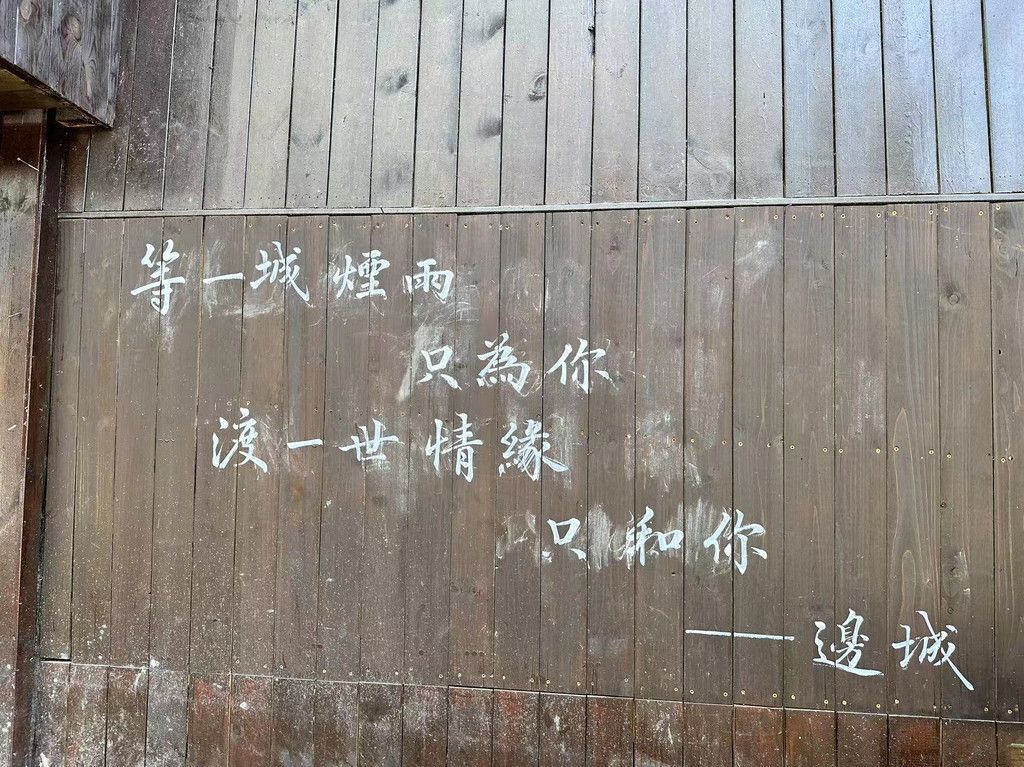 等一城煙雨
只為你
渡一世情緣
只和你
——邊城